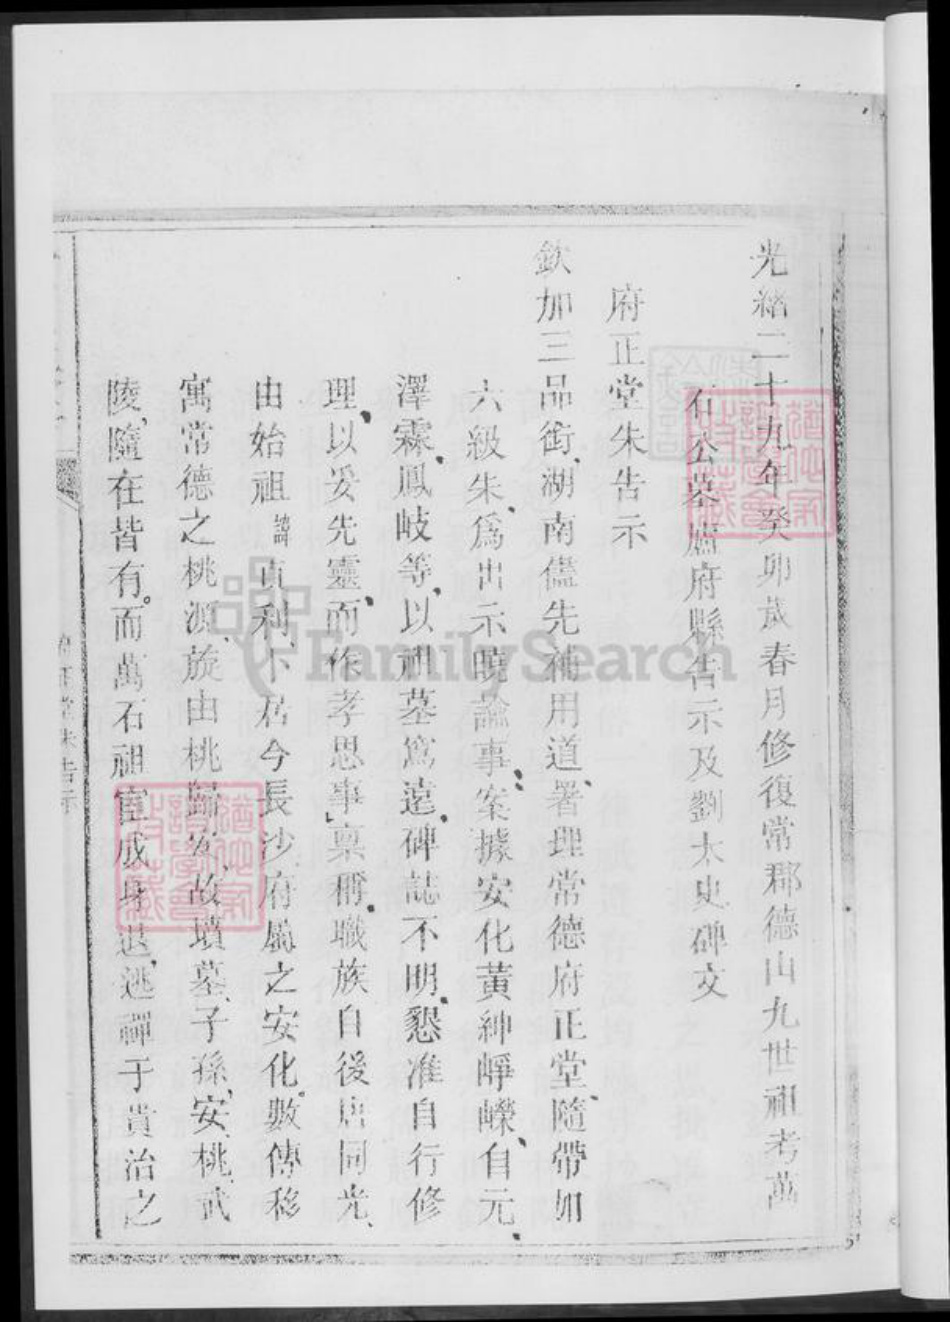 光緒二十九年癸卯歲春月修復常郡德山九世祖考萬
石公墓廬府縣告示及劉太史碑文
府正堂朱告示
欽加三品銜、湖南儘先補用道、署理常德府正堂、隨帶加
六級朱、爲出示曉諭事、案據安化黃紳崢嶸、自元、
澤霖、鳳岐等、以祖墓窵遠、碑誌不明、懇准自行修
理、以妥先靈、而作孝思事、稟稱、職族自後唐同光、
由始祖諱吉利、卜居今長沙府屬之安化。數傳移
寓常德之桃源、旋由桃歸安、故墳墓、子孫、安、桃、武
陵、隨在皆有。而萬石祖宦成身退、逃禪于貴治之
府正堂朱告示
FamilySearch